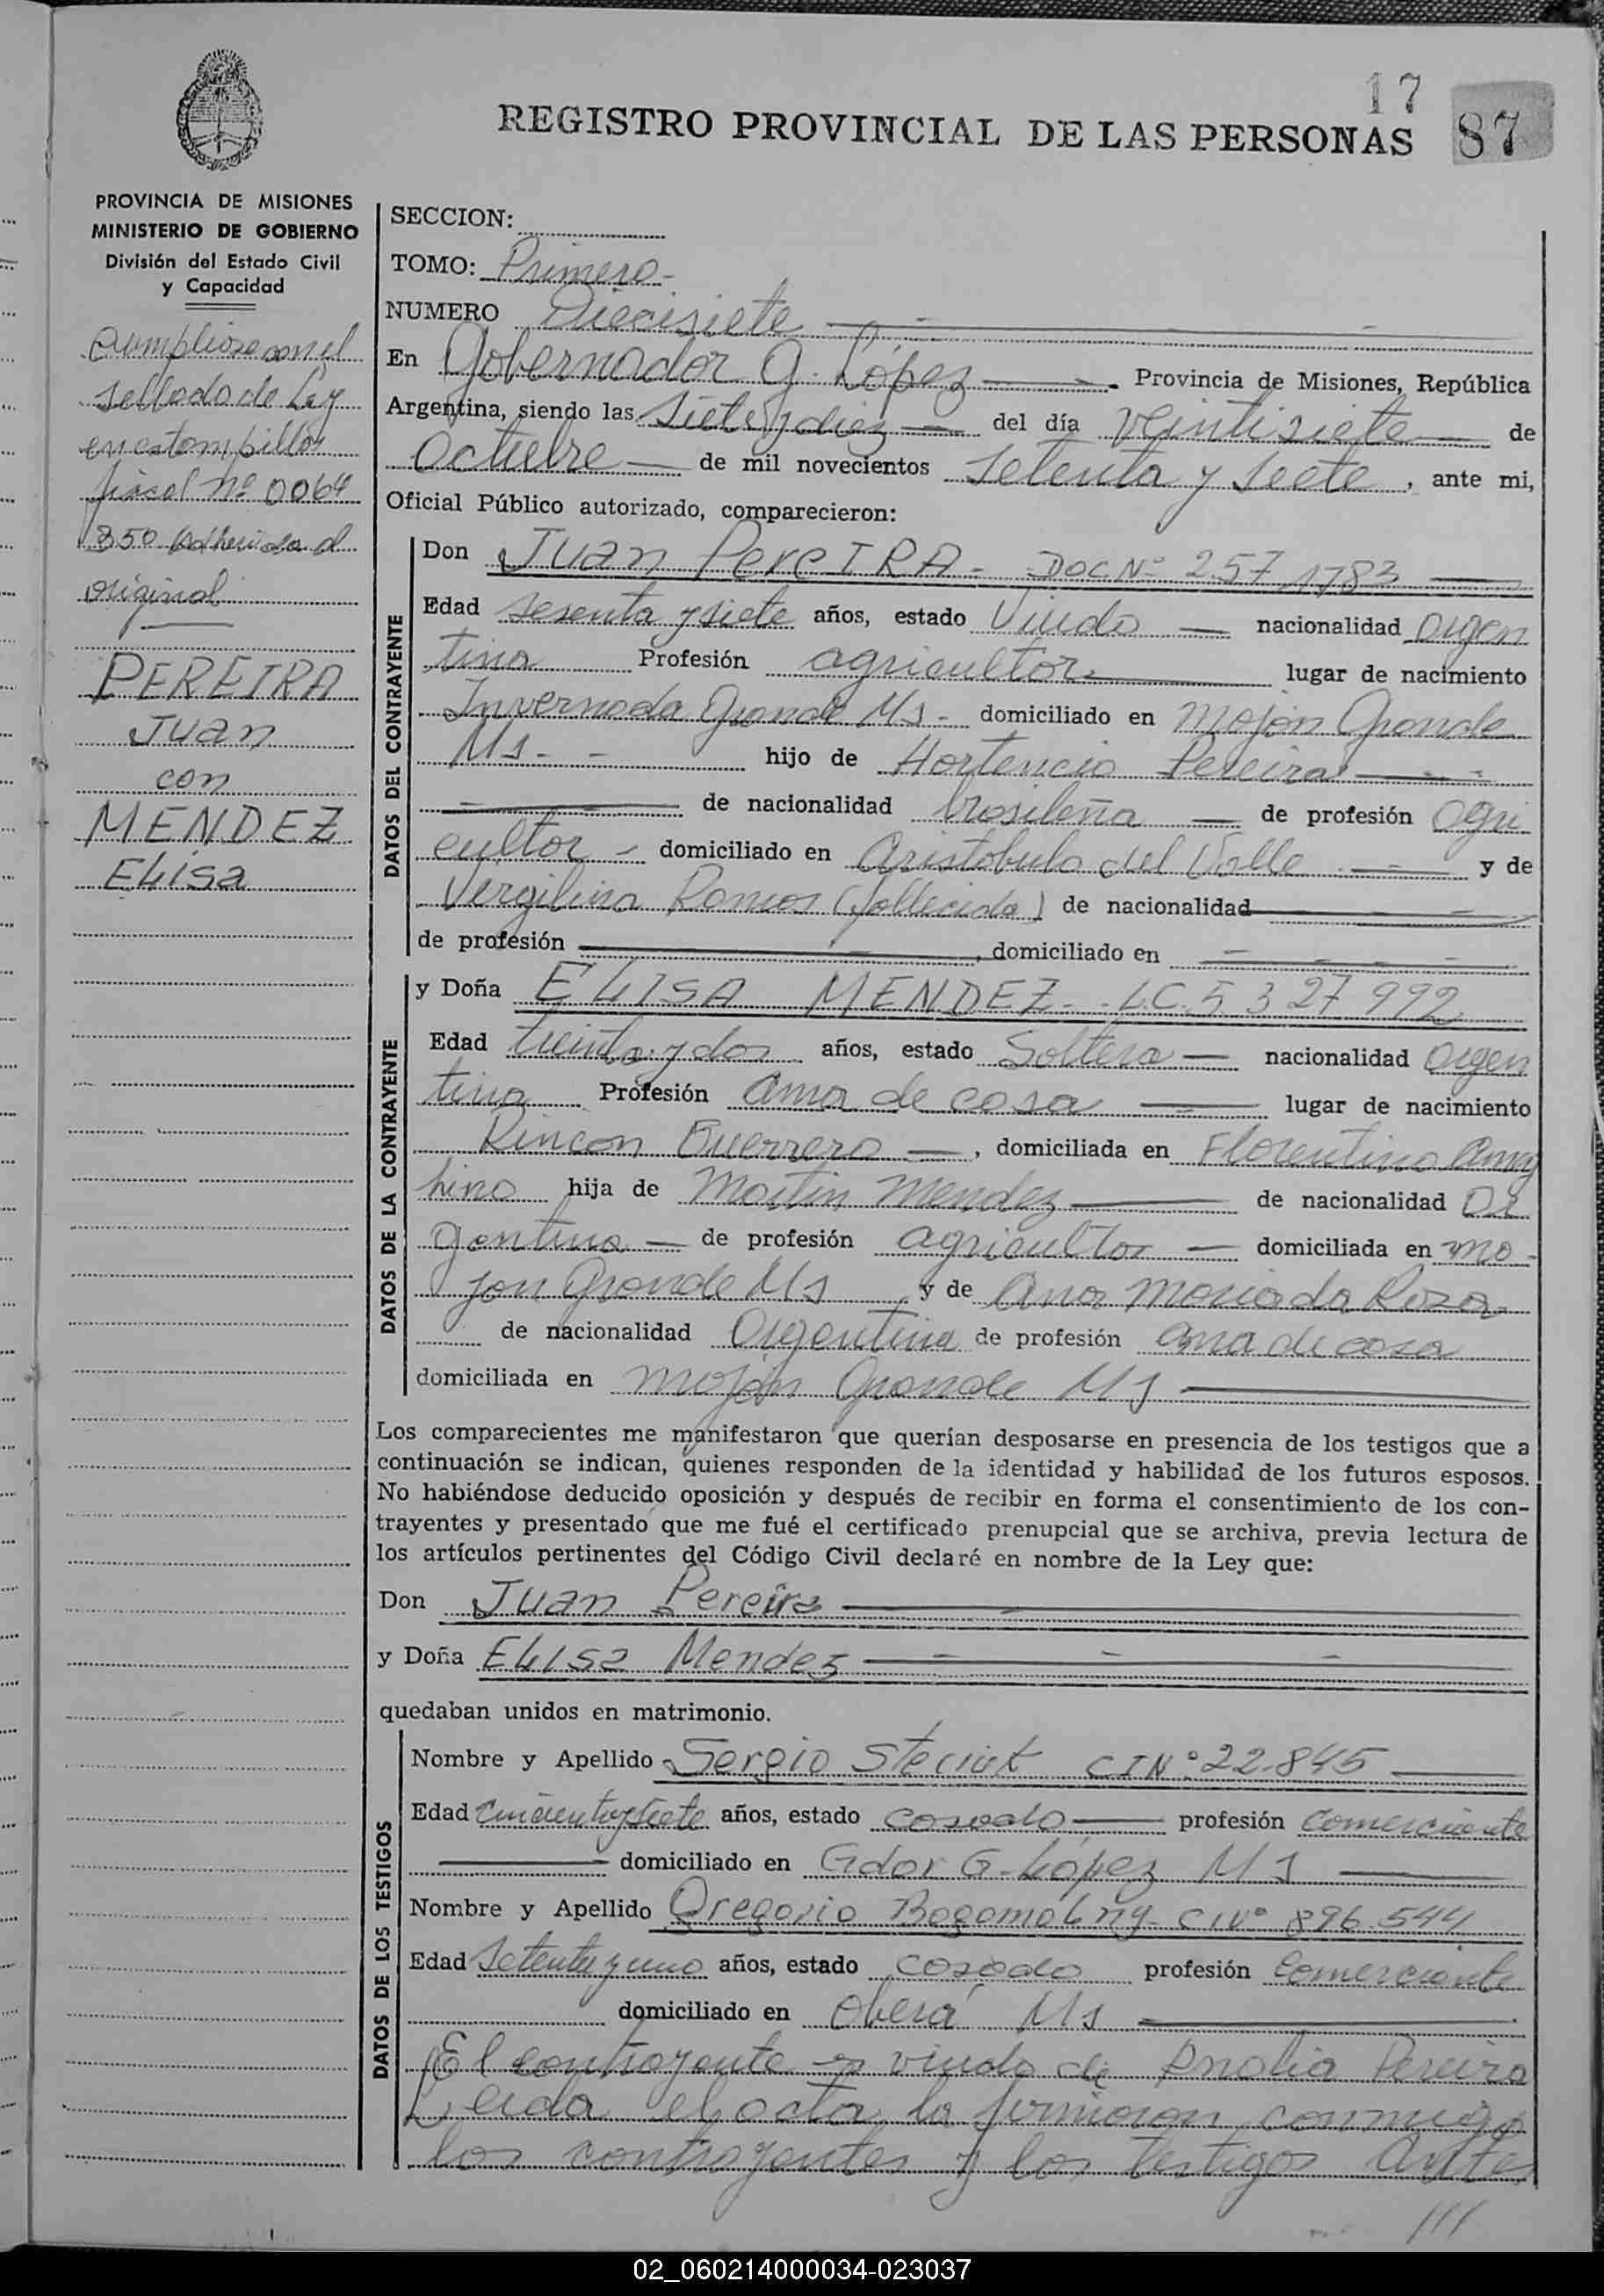 17
REGISTRO PROVINCIAL DE LAS PERSONAS 87
PROVINCIA DE MISIONES
MINISTERIO DE GOBIERNO
División del Estado Civil
y Capacidad
Cumpliose con el
sellado de Ley
en estampillas
fiscal Nº 0064
850 adherida al
original
PEREIRA
Juan
con
MENDEZ
Elisa
SECCION:
TOMO: Primero -
NUMERO Diecisiete
En Gobernador G. López Provincia de Misiones, República
Argentina, siendo las siete y diez del día veintisiete de
Octubre de mil novecientos setenta y siete, ante mi,
Oficial Público autorizado, comparecieron:
DATOS DEL CONTRAYENTE
Don Juan PereIRA - DOC Nº 2.57 1783
Edad sesenta y siete años, estado Viudo nacionalidad argen
tina Profesión agricultor lugar de nacimiento
Invernada Grande Ms - domiciliado en Mojón Grande
Ms - - hijo de Hortencio Pereira
de nacionalidad brasileña de profesión agri
cultor - domiciliado en Aristobulo del Valle y de
Vergilina Ramos (fallecida) de nacionalidad
de profesión , domiciliado en
DATOS DE LA CONTRAYENTE
y Doña ELISA MENDEZ - L.C. 5.327 992
Edad treinta y dos años, estado Soltera nacionalidad argen
tina Profesión ama de casa lugar de nacimiento
Rincon Guerrero , domiciliada en Florentino Ameg
hino hija de Martin Mendez de nacionalidad Ar
gentina de profesión agricultor domiciliada en Mo-
jon Grande Ms y de Ana Maria da Rosa -
de nacionalidad Argentina de profesión ama de casa
domiciliada en Mojón Grande Ms
Los comparecientes me manifestaron que querían desposarse en presencia de los testigos que a
continuación se indican, quienes responden de la identidad y habilidad de los futuros esposos.
No habiéndose deducido oposición y después de recibir en forma el consentimiento de los con-
trayentes y presentado que me fué el certificado prenupcial que se archiva, previa lectura de
los artículos pertinentes del Código Civil declaré en nombre de la Ley que:
Don Juan Pereira
y Doña Elisa Mendez
quedaban unidos en matrimonio.
DATOS DE LOS TESTIGOS
Nombre y Apellido Sergio CI Nº 22.845
Edad cincuenta y siete años, estado casado profesión comerciante
domiciliado en Gdor G. López Ms
Nombre y Apellido Gregorio Bogomolny - CI Nº 896.544
Edad Setenta y uno años, estado casado profesión comerciante
domiciliado en Oberá Ms
El contrayente es viudo de Analia Pereira
Leida el acta, la firmaron conmigo
los contrayentes y los testigos Ante
///
02_060214000034-023037